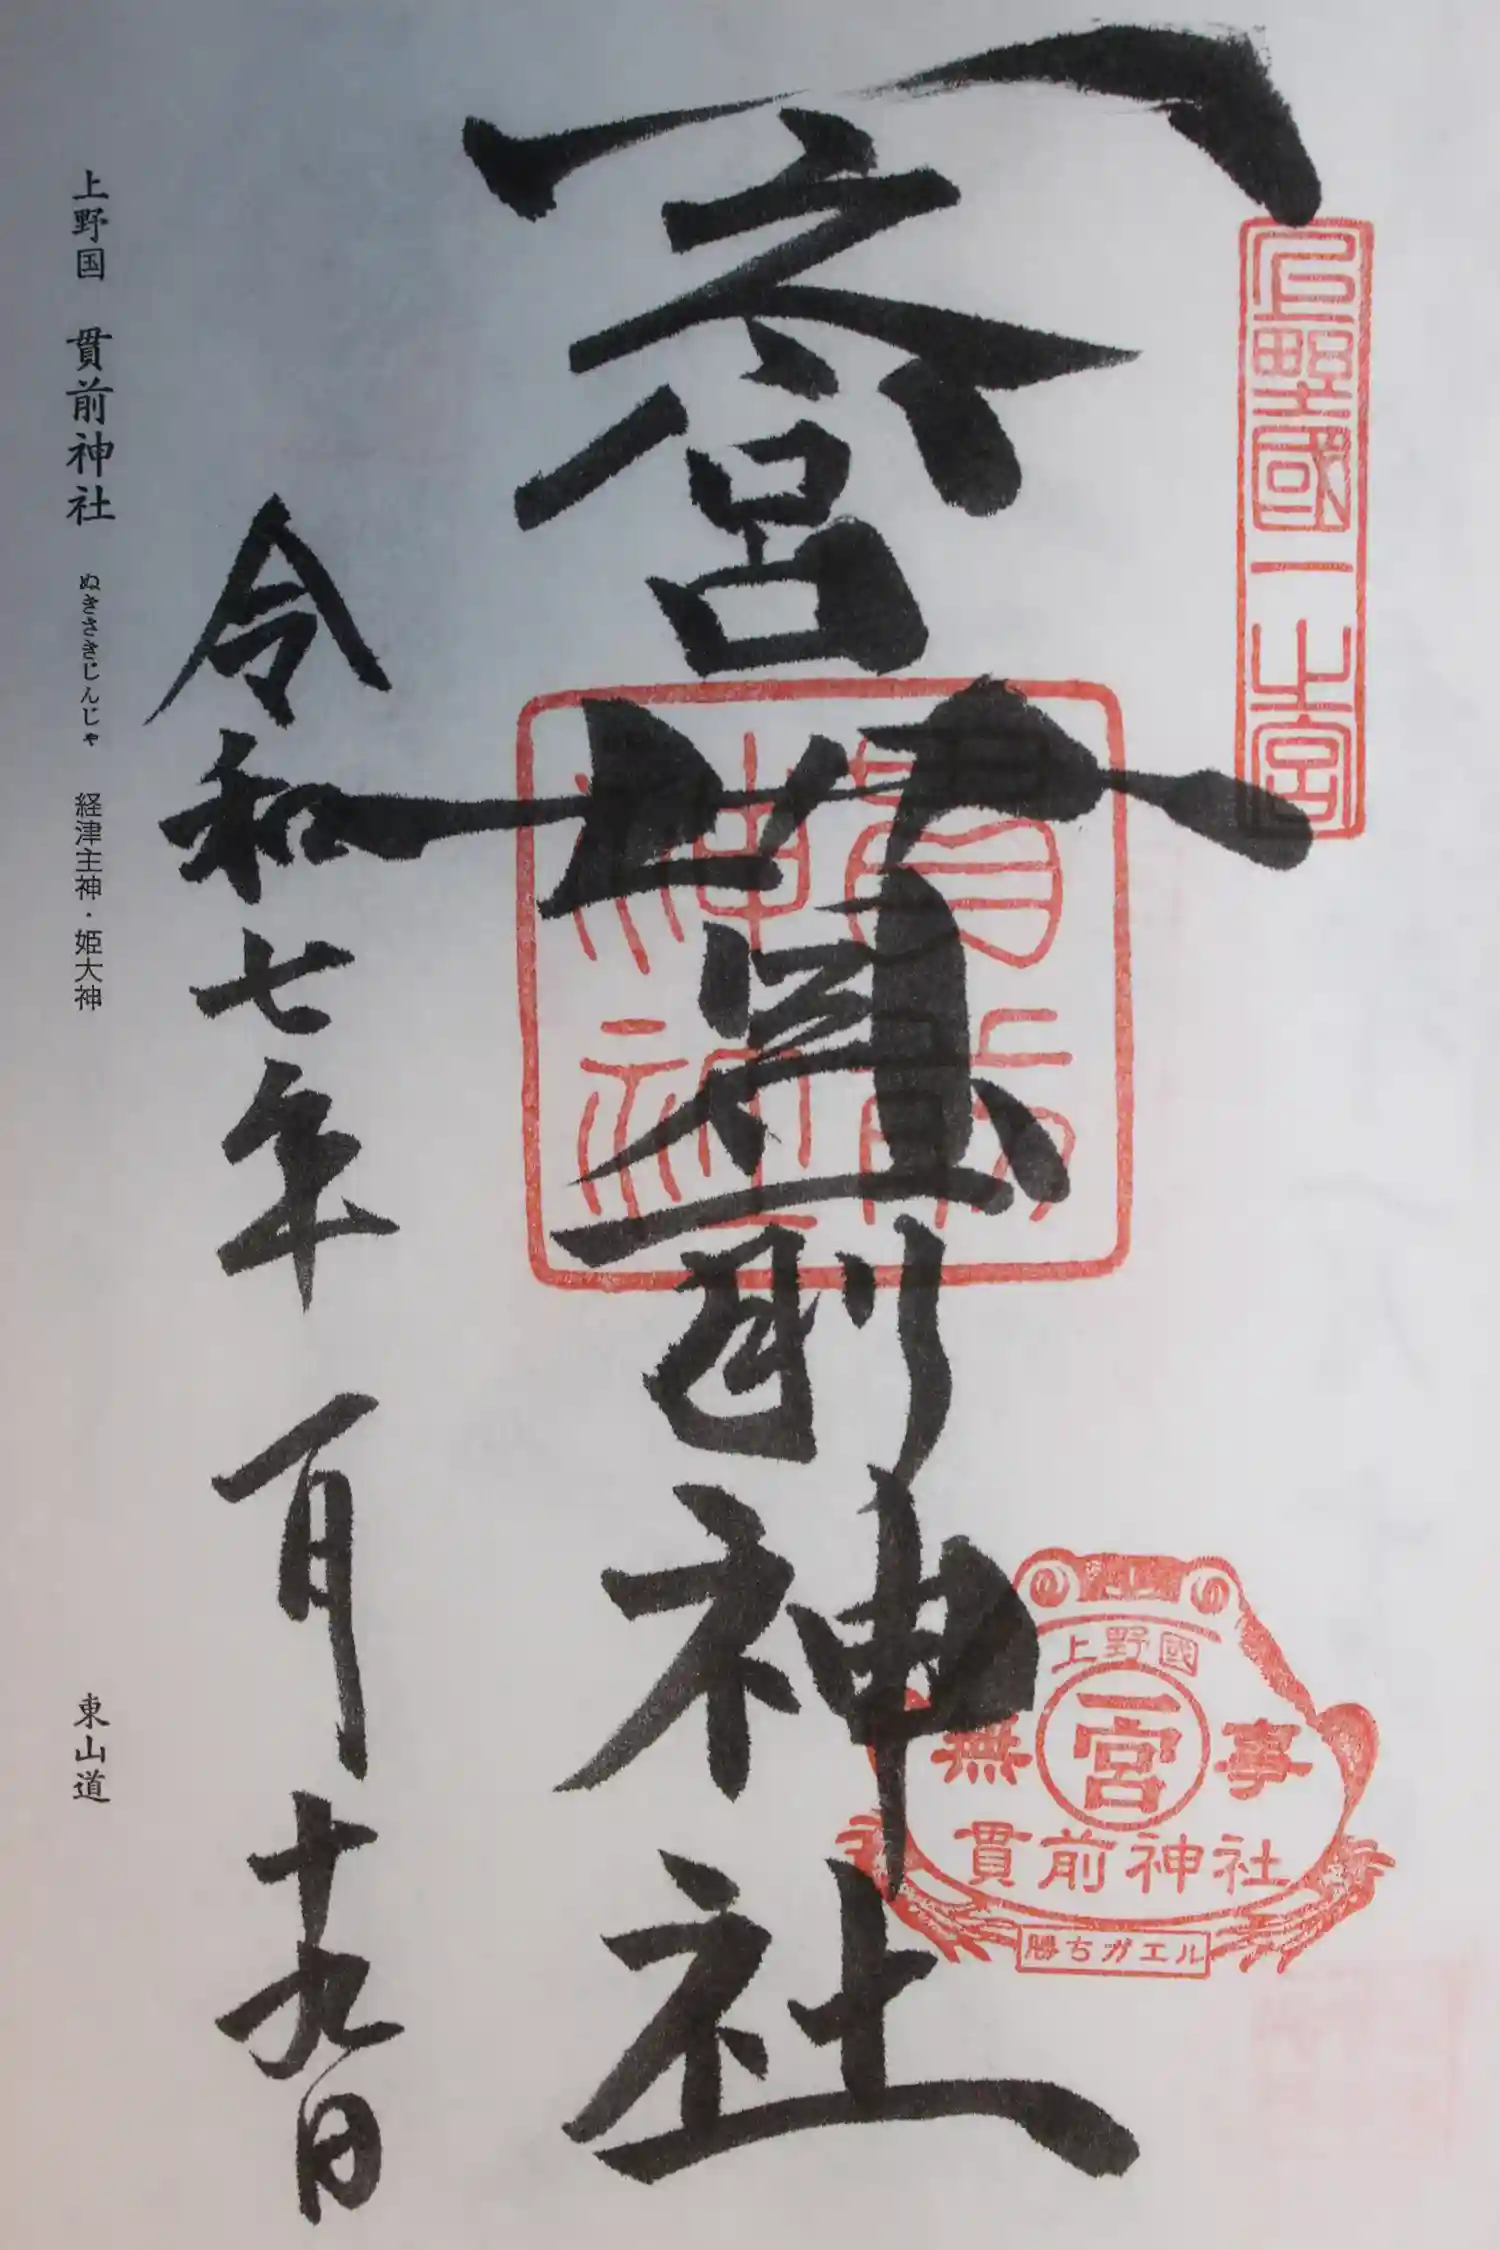 上野國一之宮
一之宮貫前神社
貫前
神社
上野國
無事
一宮
貫前神社
勝ちガエル
令和七年一月十九日
上野国 貫前神社 ぬきさきじんじゃ 経津主神・姫大神 東山道